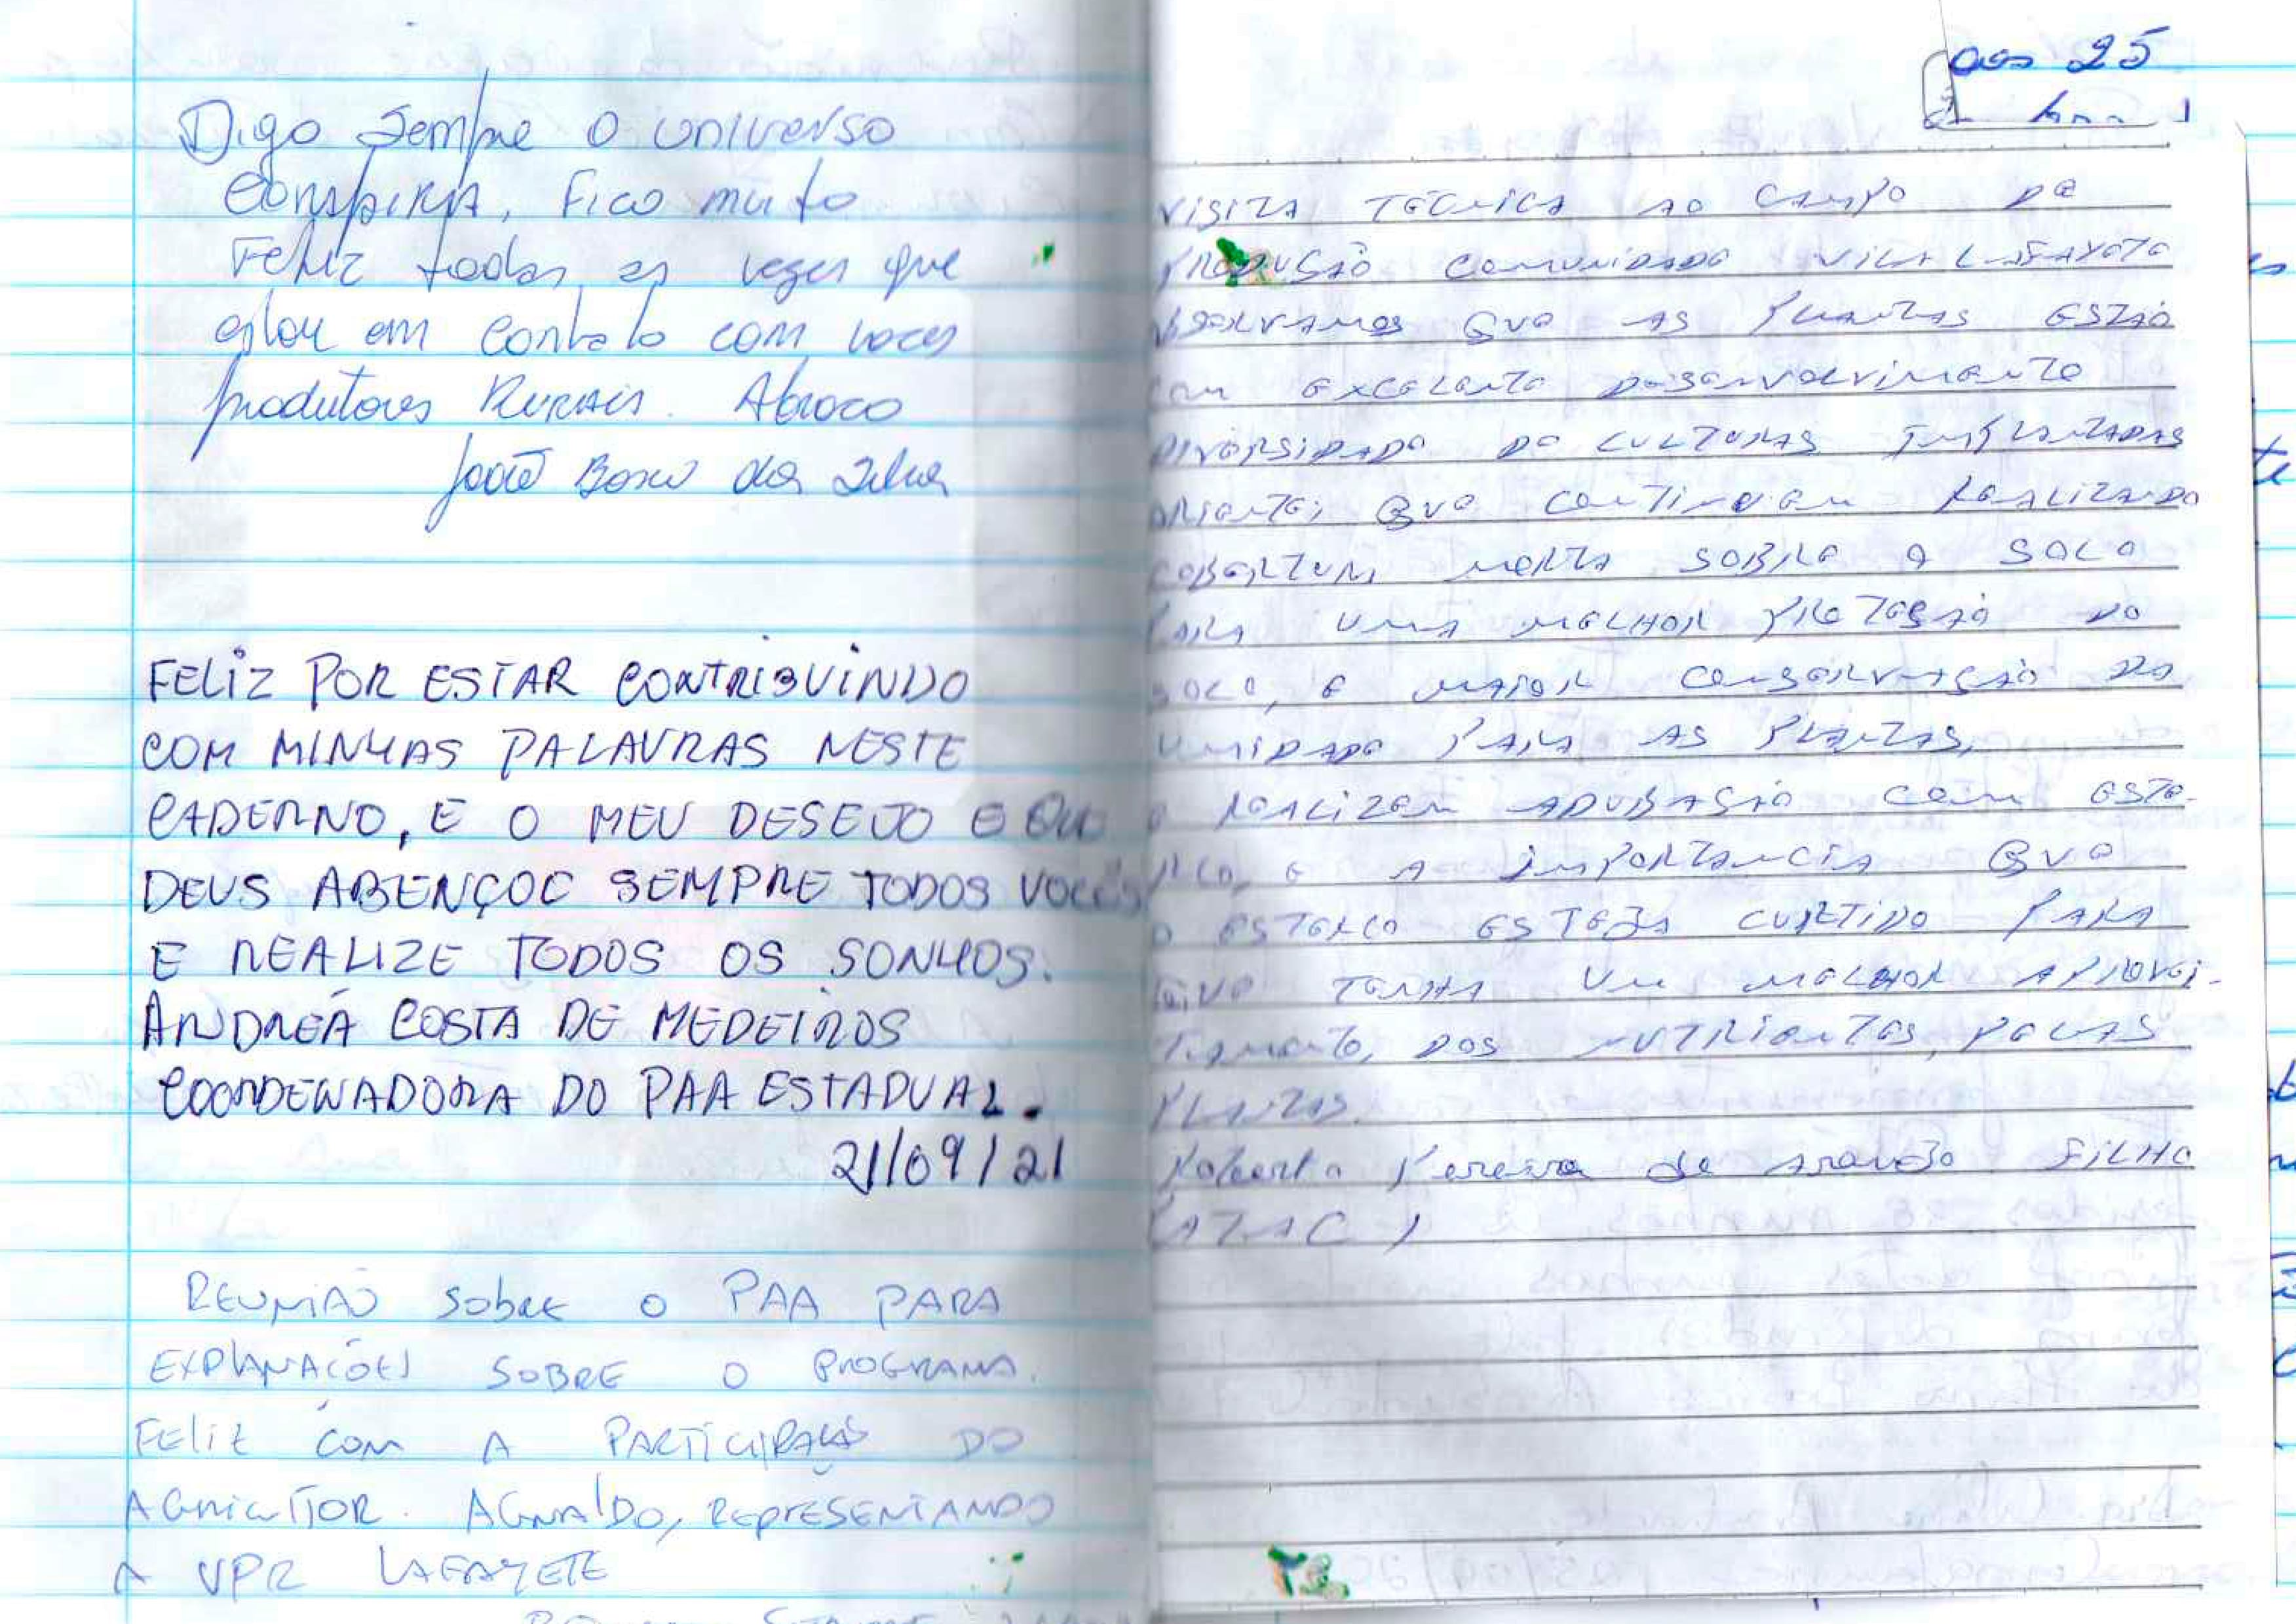 Digo Sempre O universo
Conspira, Fico muito
Feliz todas as vezes que
estou em contato com voces
produtores Rurais. Abraço
João Bosco da Silva
FELIZ POR ESTAR CONTRIBUINDO
COM MINHAS PALAVRAS NESTE
CADERNO, E O MEU DESEJO E QUE
DEUS ABENÇOE SEMPRE TODOS VOCÊS
E REALIZE TODOS OS SONHOS.
ANDREA COSTA DE MEDEIROS
COORDENADORA DO PAA ESTADUAL.
21/09/21
REUNIÃO SOBRE O PAA PARA
EXPLANAÇÕES SOBRE O PROGRAMA.
FELIZ COM A PARTICIPAÇÃO DO
AGRICULTOR. AGNALDO, REPRESENTANDO
A VPR LAFAYETE
aos 25
VISITA TECNICA AO CAMPO DE
PRODUSÃO COMUNIDADE VILA LAFAYETE
OBSERVAMOS QUE AS PLANTAS ESTÃO
COM EXCELENTE DESENVOLVIMENTO
DIVERSIDADE DE CULTURAS IMPLANTADAS
ORIENTEI QUE CONTINUEM REALIZANDO
COBERTURA MORTA SOBRE O SOLO
PARA UMA MELHOR PROTEÇÃO DO
SOLO, E MAIOR CONSERVAÇÃO DA
UMIDADE PARA AS PLANTAS,
E REALIZEM ADUBASÃO COM ESTE-
RCO, E A IMPORTANCIA QUE
O ESTERCO ESTEJA CURTIDO PARA
QUE TENHA UM MELHOR APROVEI-
TAMENTO, DOS NUTRIENTES, PELAS
PLANTAS.
Roberto Pereira de Araujo FILHO
(ATAC)